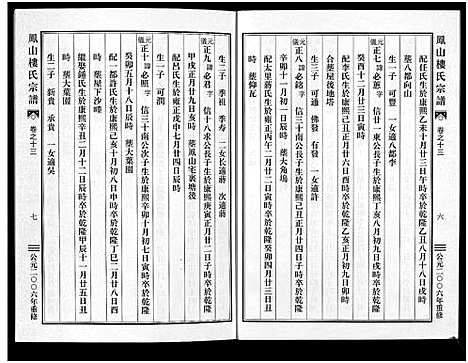 鳳山樓氏宗譜
卷之十三
六
公元二〇〇六年重修
配任氏生於康熙乙未十月廿三日戌時卒於乾隆乙丑八月十八日戌時
葬八都向山
生一子 可豐 一女適八都李
正七諱必蕉字 信三十一東公長子生於康熙丁亥八月初九日戌時卒於乾隆
癸酉十二月廿三日寅時
配李氏生於康熙辛卯十月廿三日寅時卒於乾隆乙亥正月初九日亥時
合葬屋後地塔
生三子 可通 佛 有發 一女適許
正八諱必銘字 信三十八
辛卯十一月初一日辰時 葬大角塢
配太里蔣氏生於雍正丙午二月廿二日寅時卒於乾隆癸卯四月廿三日
時 葬仰瓦
鳳山樓氏宗譜
卷之十三
七
公元二〇〇六年重修
生二子 季根 季壽 一女長適蔣 次適蔣
正九諱必君字 信十八水公長子生於康熙庚寅正月廿二日子時卒於乾隆
甲戌正月廿九日亥時 葬鳳山宅裏塘後
配呂氏生於雍正戊申七月廿四日辰時 葬大葉園
生一子 可潤
正十諱 字 信三十南公次子生於康熙辛卯十月初七日寅時卒於乾隆
癸卯五月十八日時 葬屋下沙嘜
配一都許氏生於康熙癸巳十月初八日申時卒於乾隆丁巳二月廿八日酉
繼娶鍾氏生於康熙辛丑二月十二日辰時卒於乾隆甲辰十一月廿五日丑
時 葬大葉園
生二子 新貴 承貴 一女適吳